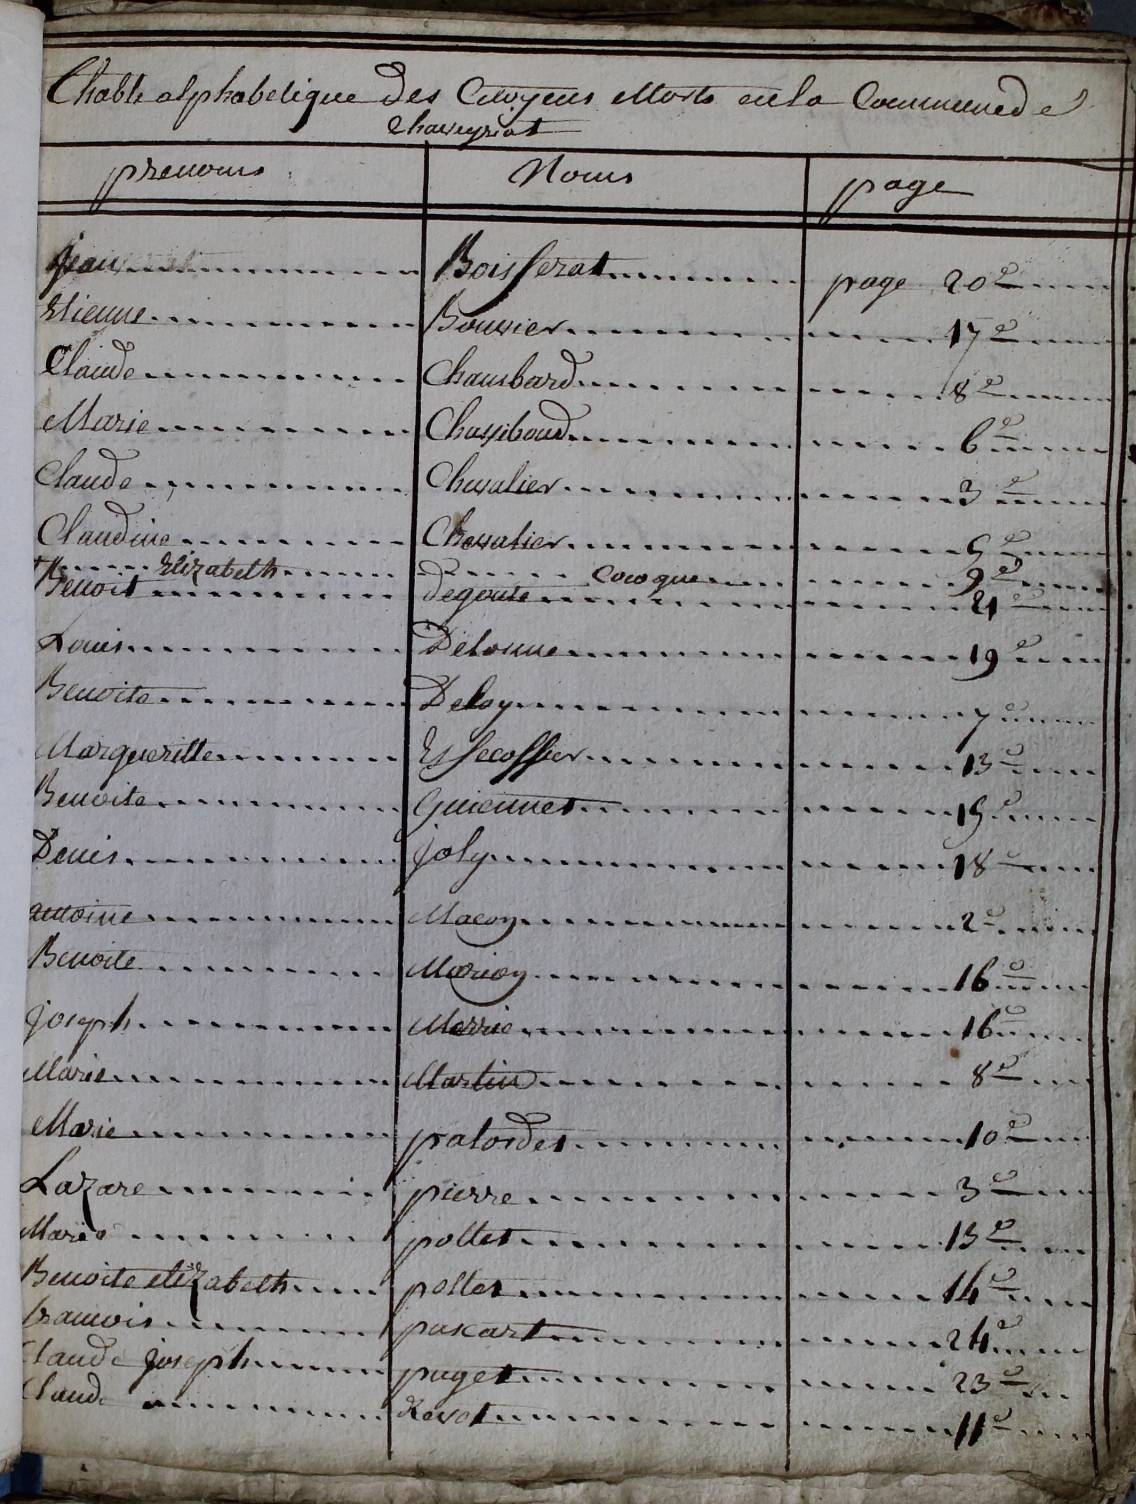 Thable alphabetique Des Citoyens Morts en la Commune de
Chaveyriat
prenoms Noms page
jean Boisserat page 20e
Etienne Bouvier 17e
Claude Chambard 8e
Marie Chassiboud 6e
Claude Chevalier 3e
Claudine Chevalier 5e
Elizabeth Cocogne 9e
Benoit degoute 21e
Louis Delorme 19e
Benoite Deloy 7e
Margueritte Essecoffier 13e
Benoite guiennet 15e
Denis joly 18e
antoine Macon 2e
Benoite Marion 16e
joseph Marrie 16e
Marie Martin 8e
Marie pralordet 10e
Lazare pierre 3e
Marie pollet 13e
Benoite elizabeth pollet 14e
francois puscart 24e
Claude joseph puget 23e
Claude Revot 11e